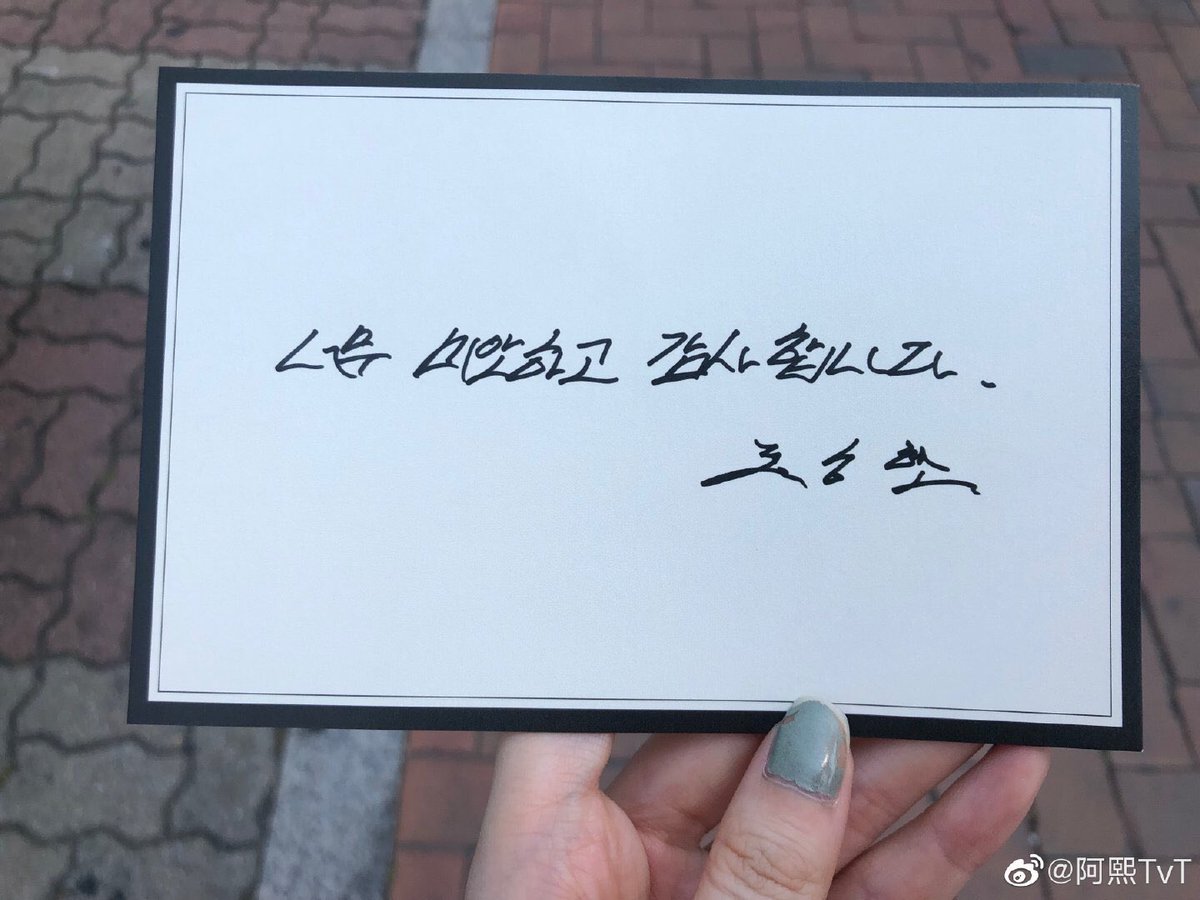 너무 미안하고 감사합니다.
조승연
@阿熙TvT